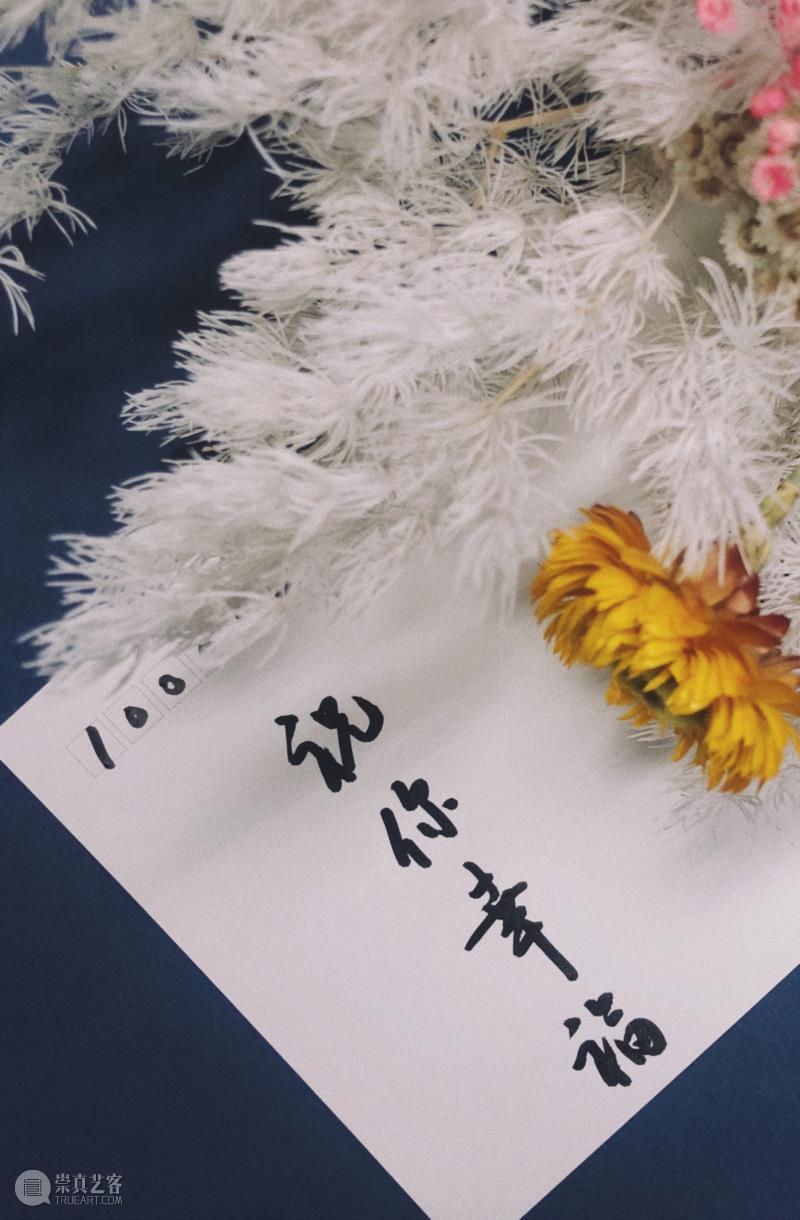 100
祝你幸福
崇真艺客
TRUEART.COM